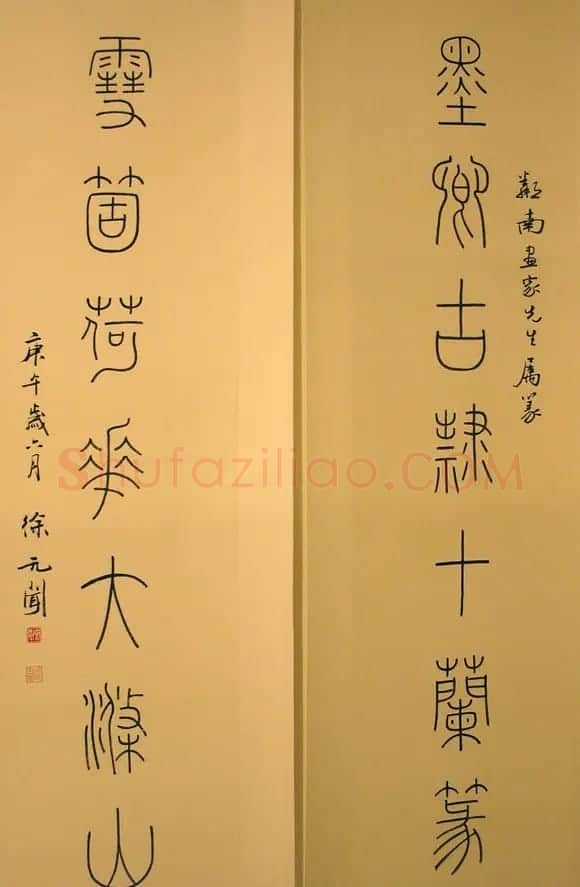 南畫家先生属篆
墨卿古隸十蘭篆
雪箇荷華大滌山
庚午歲六月 徐无聞
Shufaziliao.COM